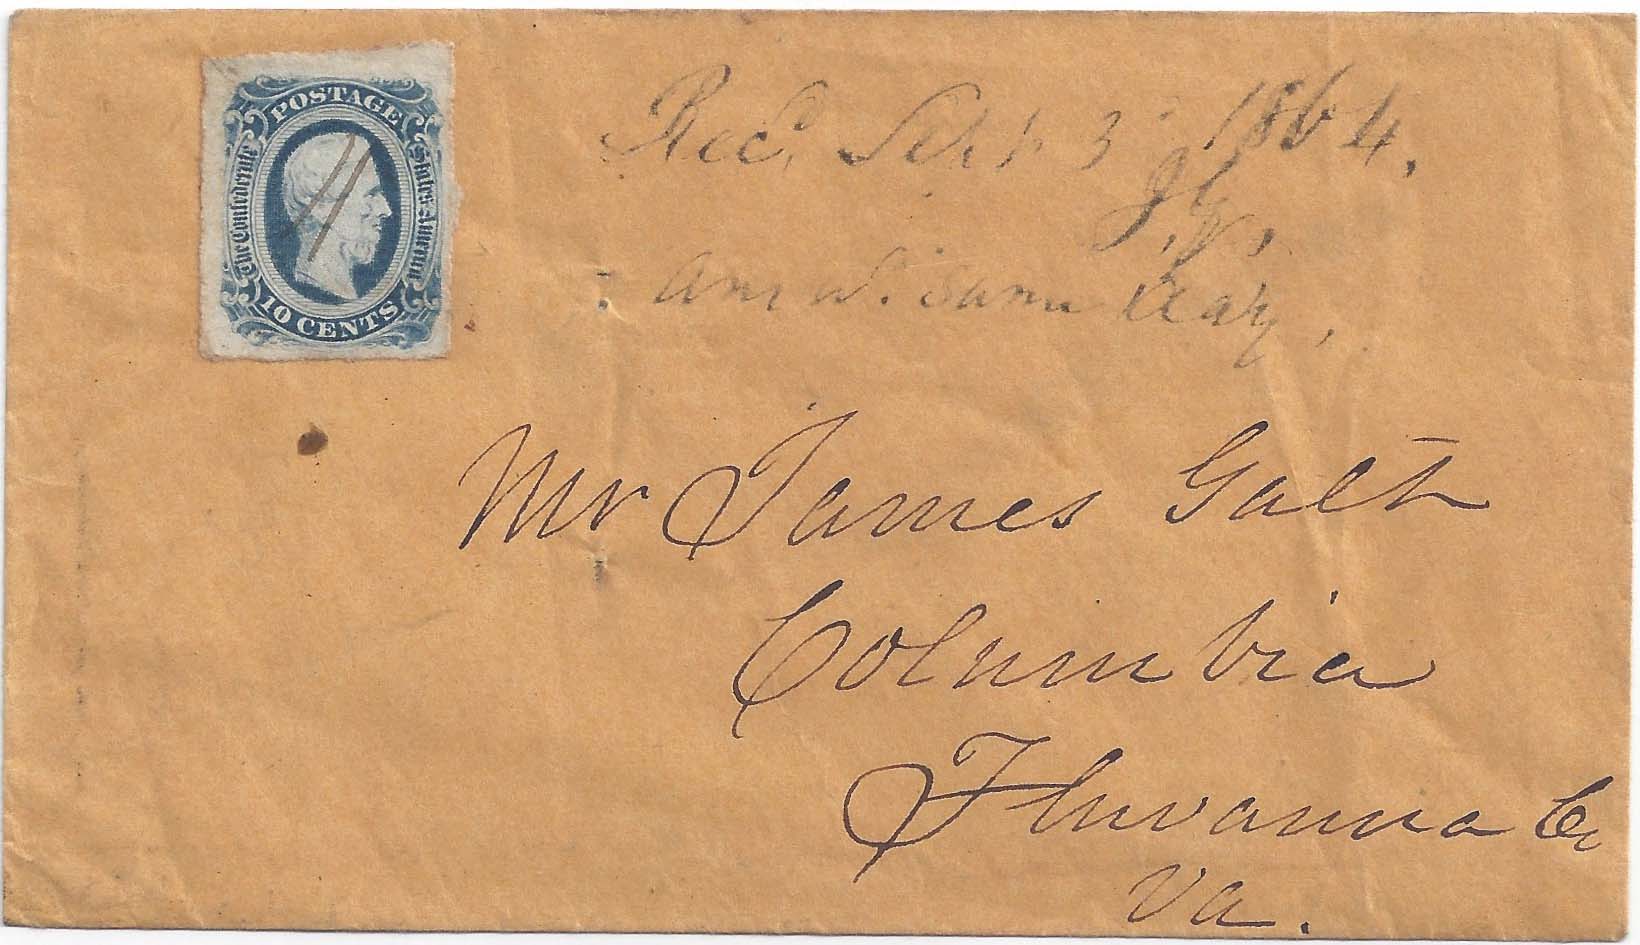 POSTAGE
The Confederate States America
10 CENTS
Rec. Sept. 3 1864.
J. G.
answd. same day.
Mr James Galt
Columbia
Fluvanna Co
Va.